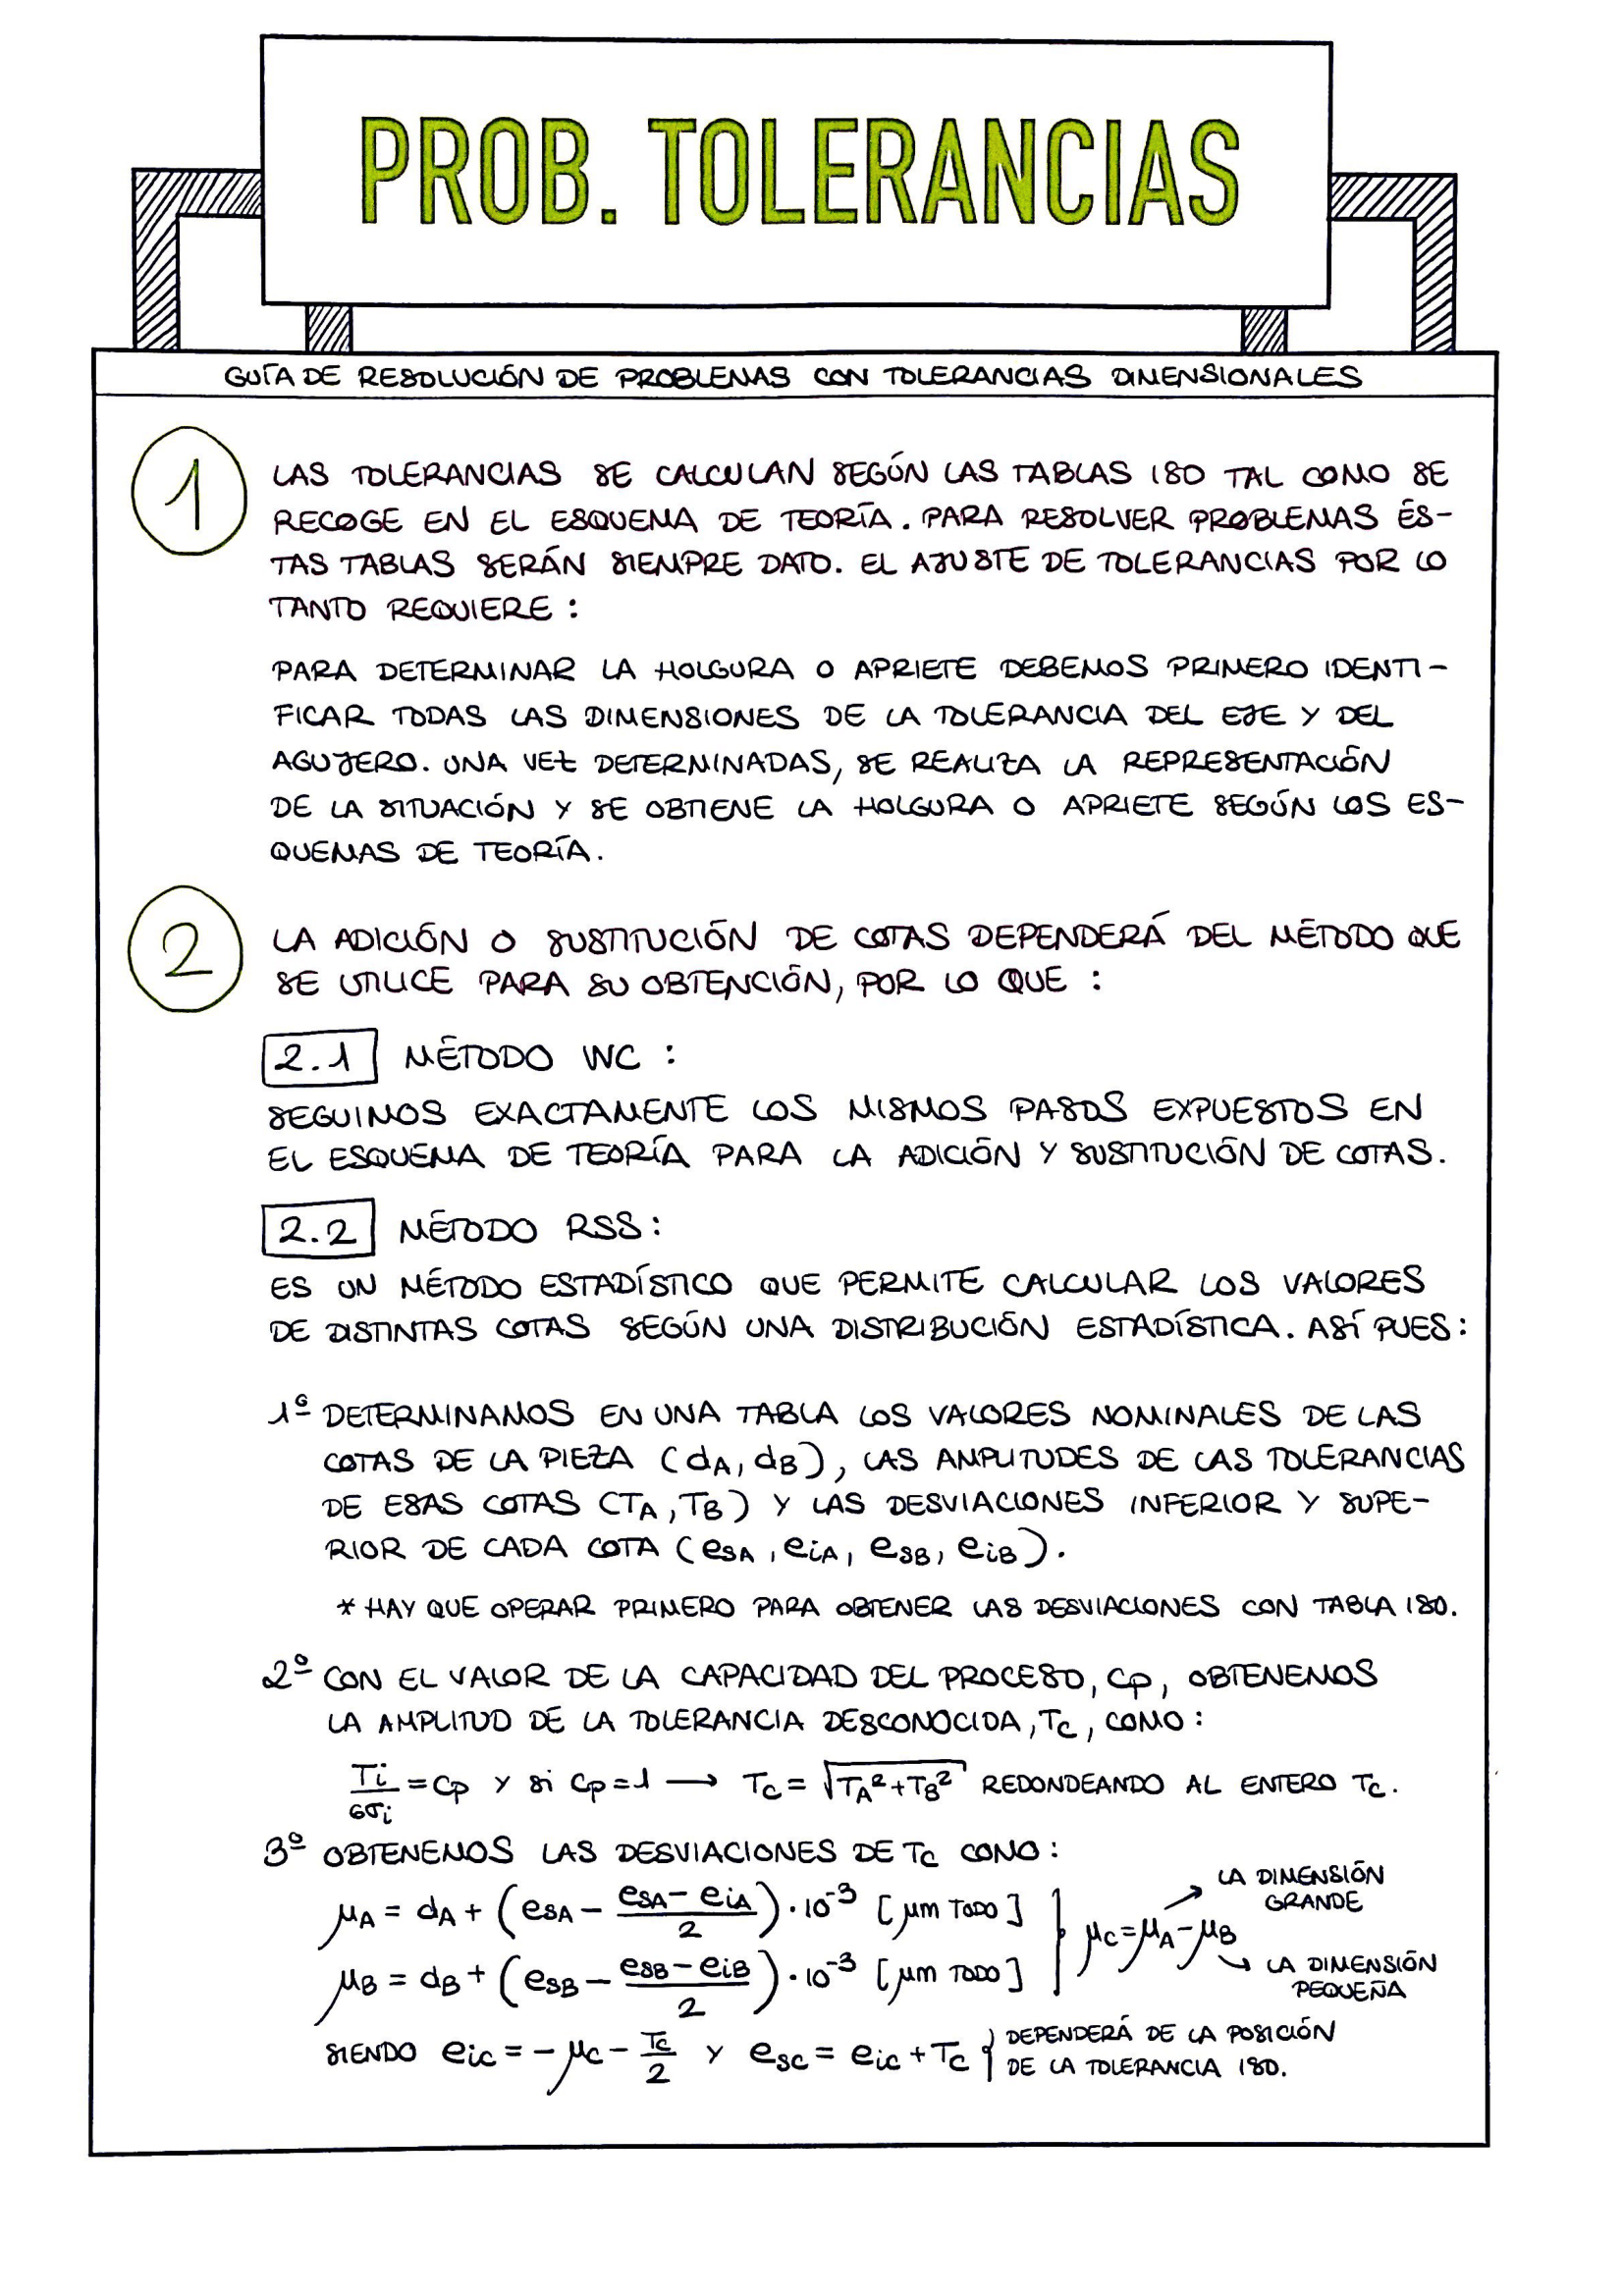 PROB. TOLERANCIAS
GUÍA DE RESOLUCIÓN DE PROBLEMAS CON TOLERANCIAS DIMENSIONALES
1
LAS TOLERANCIAS SE CALCULAN SEGÚN LAS TABLAS ISO TAL COMO SE
RECOGE EN EL ESQUEMA DE TEORÍA. PARA RESOLVER PROBLEMAS ÉS-
TAS TABLAS SERÁN SIEMPRE DATO. EL AJUSTE DE TOLERANCIAS POR LO
TANTO REQUIERE :
PARA DETERMINAR LA HOLGURA O APRIETE DEBEMOS PRIMERO IDENTI-
FICAR TODAS LAS DIMENSIONES DE LA TOLERANCIA DEL EJE Y DEL
AGUJERO. UNA VEZ DETERMINADAS, SE REALIZA LA REPRESENTACIÓN
DE LA SITUACIÓN Y SE OBTIENE LA HOLGURA O APRIETE SEGÚN LOS ES-
QUEMAS DE TEORÍA.
2
LA ADICIÓN O SUSTITUCIÓN DE COTAS DEPENDERÁ DEL MÉTODO QUE
SE UTILICE PARA SU OBTENCIÓN, POR LO QUE :
2.1 MÉTODO WC :
SEGUIMOS EXACTAMENTE LOS MISMOS PASOS EXPUESTOS EN
EL ESQUEMA DE TEORÍA PARA LA ADICIÓN Y SUSTITUCIÓN DE COTAS.
2.2 MÉTODO RSS:
ES UN MÉTODO ESTADÍSTICO QUE PERMITE CALCULAR LOS VALORES
DE DISTINTAS COTAS SEGÚN UNA DISTRIBUCIÓN ESTADÍSTICA. ASÍ PUES:
1º DETERMINAMOS EN UNA TABLA LOS VALORES NOMINALES DE LAS
COTAS DE LA PIEZA (dA, dB), LAS AMPLITUDES DE LAS TOLERANCIAS
DE ESAS COTAS (TA, TB) Y LAS DESVIACIONES INFERIOR Y SUPE-
RIOR DE CADA COTA (esA, eiA, esB, eiB).
* HAY QUE OPERAR PRIMERO PARA OBTENER LAS DESVIACIONES CON TABLA ISO.
2º CON EL VALOR DE LA CAPACIDAD DEL PROCESO, Cp, OBTENEMOS
LA AMPLITUD DE LA TOLERANCIA DESCONOCIDA, Tc, COMO:
Ti/6σi = Cp Y SI Cp=1 → Tc = √(TA²+TB²) REDONDEANDO AL ENTERO Tc.
3º OBTENEMOS LAS DESVIACIONES DE Tc COMO:
μA = dA + (esA − (esA − eiA)/2) · 10⁻³ [μm TODO]
μB = dB + (esB − (esB − eiB)/2) · 10⁻³ [μm TODO]
μC = μA − μB
→ LA DIMENSIÓN
GRANDE
→ LA DIMENSIÓN
PEQUEÑA
SIENDO eic = − μc − Tc/2 Y esc = eic + Tc
DEPENDERÁ DE LA POSICIÓN
DE LA TOLERANCIA ISO.